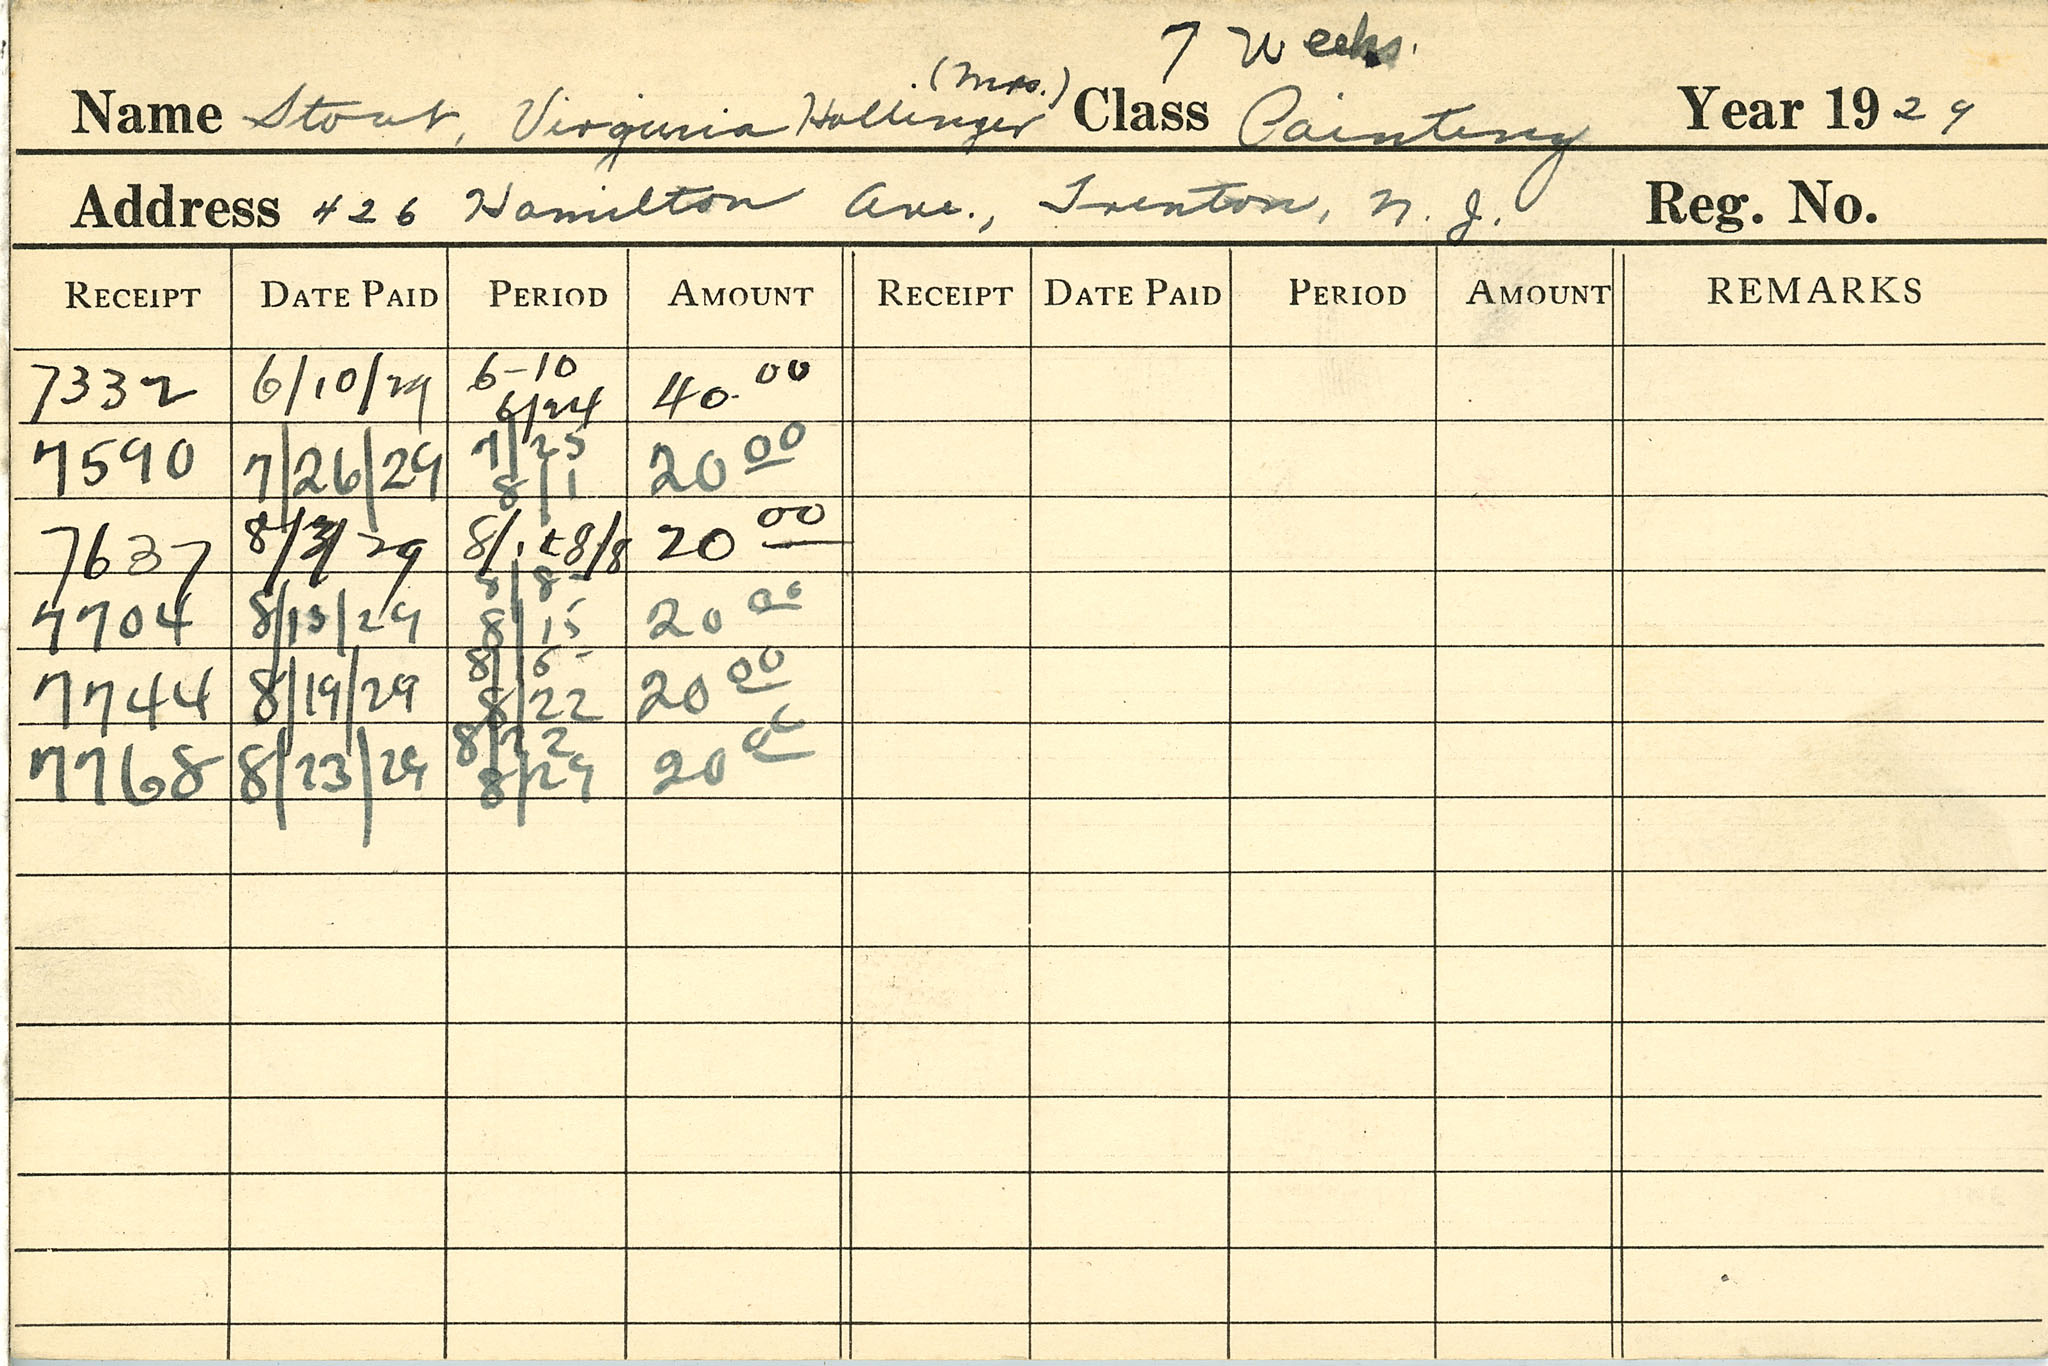 7 Weeks.
(Mrs.)
Name Stout, Virginia Hollinger Class Painting Year 1929
Address 426 Hamilton Ave., Trenton, N. J. Reg. No.
RECEIPT DATE PAID PERIOD AMOUNT RECEIPT DATE PAID PERIOD AMOUNT REMARKS
7332 6/10/29 6-10 40.00
6/24
7590 7/26/29 7/25 20 00
8/1
7637 8/3/29 8/1 8/8 20 00
8/8-
7704 8/13/29 8/15 20 00
8/15-
7744 8/19/29 8/22 20 00
8/22
7768 8/23/29 8/29 20 00